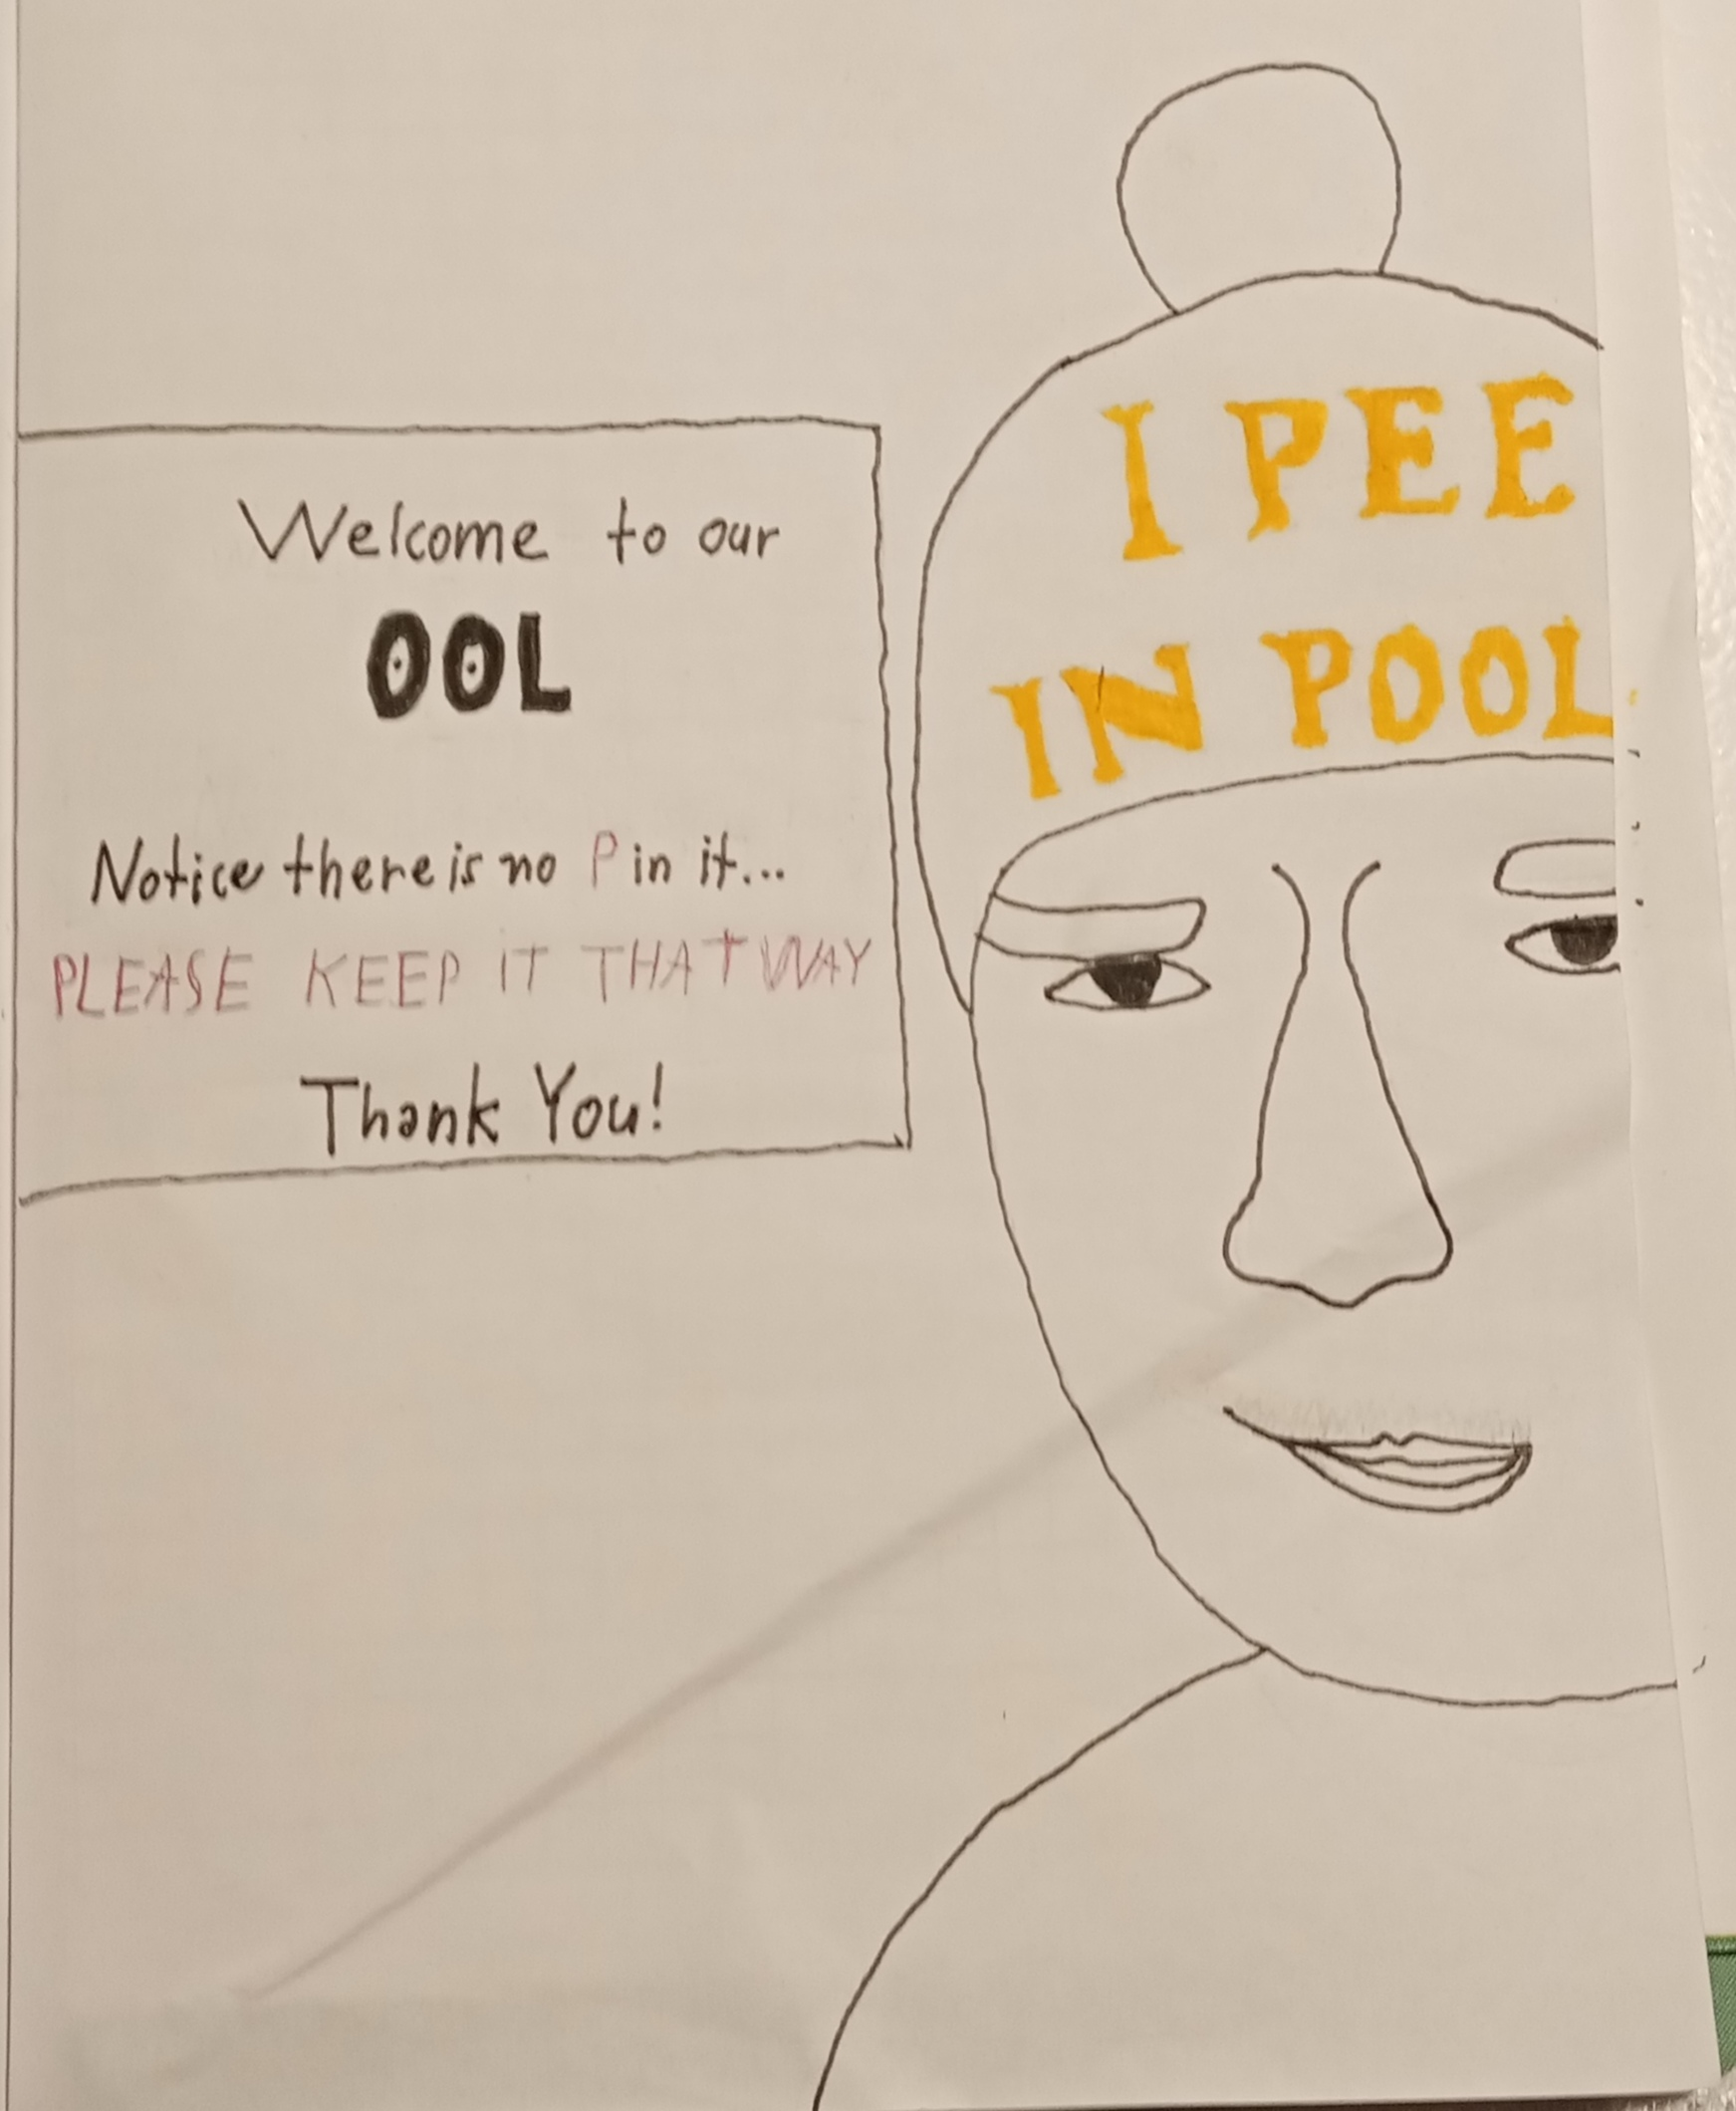 Welcome to our
OOL
Notice there is no P in it...
PLEASE KEEP IT THAT WAY
Thank You!
I PEE
IN POOL